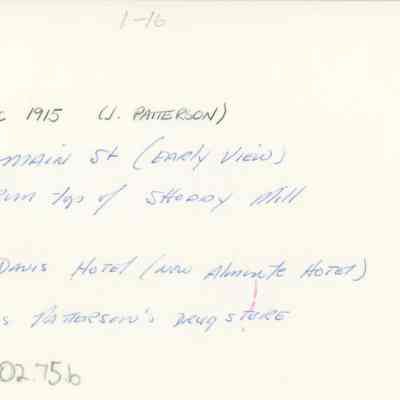 1-16
1915 (J. PATTERSON)
MAIN St (EARLY VIEW)
top of SHODDY Mill
DAVIS HOTEl (NOW Almonte HOTEl)
PATTERSON'S DRUG STORE
02.75.b